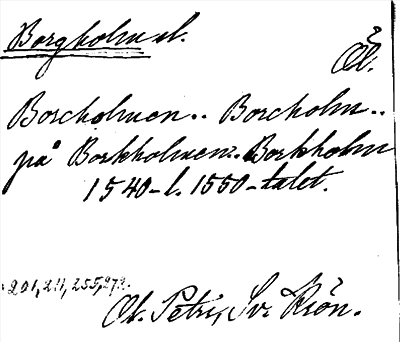 Borgholm sl.
Öl.
Borcholmen.. Borcholm..
på Borkholmen.. Borkholm
1540-l. 1550-talet.
201, 211, 255, 272.
Ol. Petri, Sv. Krön.